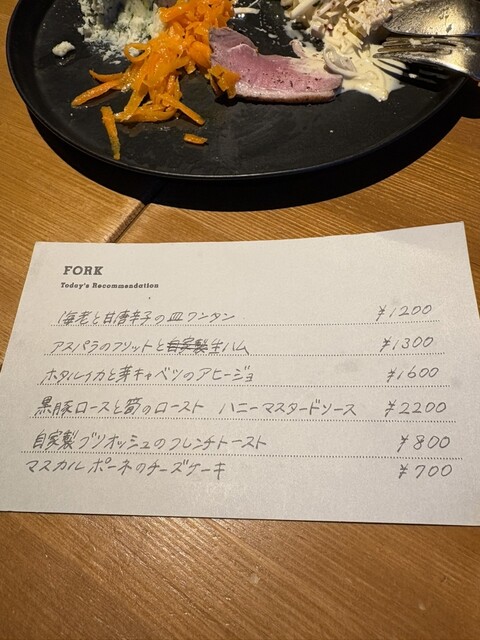 FORK
Today's Recommendation
海老と甘唐辛子の皿ワンタン ¥1200
アスパラのフリットと自家製生ハム ¥1300
ホタルイカと芽キャベツのアヒージョ ¥1600
黒豚ロースと筍のロースト ハニーマスタードソース ¥2200
自家製ブリオッシュのフレンチトースト ¥800
マスカルポーネのチーズケーキ ¥700